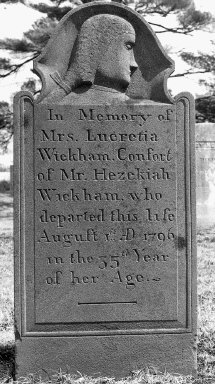 In Memory of
Mrs. Lucretia
Wickham, Confort
of Mr. Hezekiah
Wickham, who
departed this life
Auguft 1ſt. D 1796
in the 35th Year
of her Age.